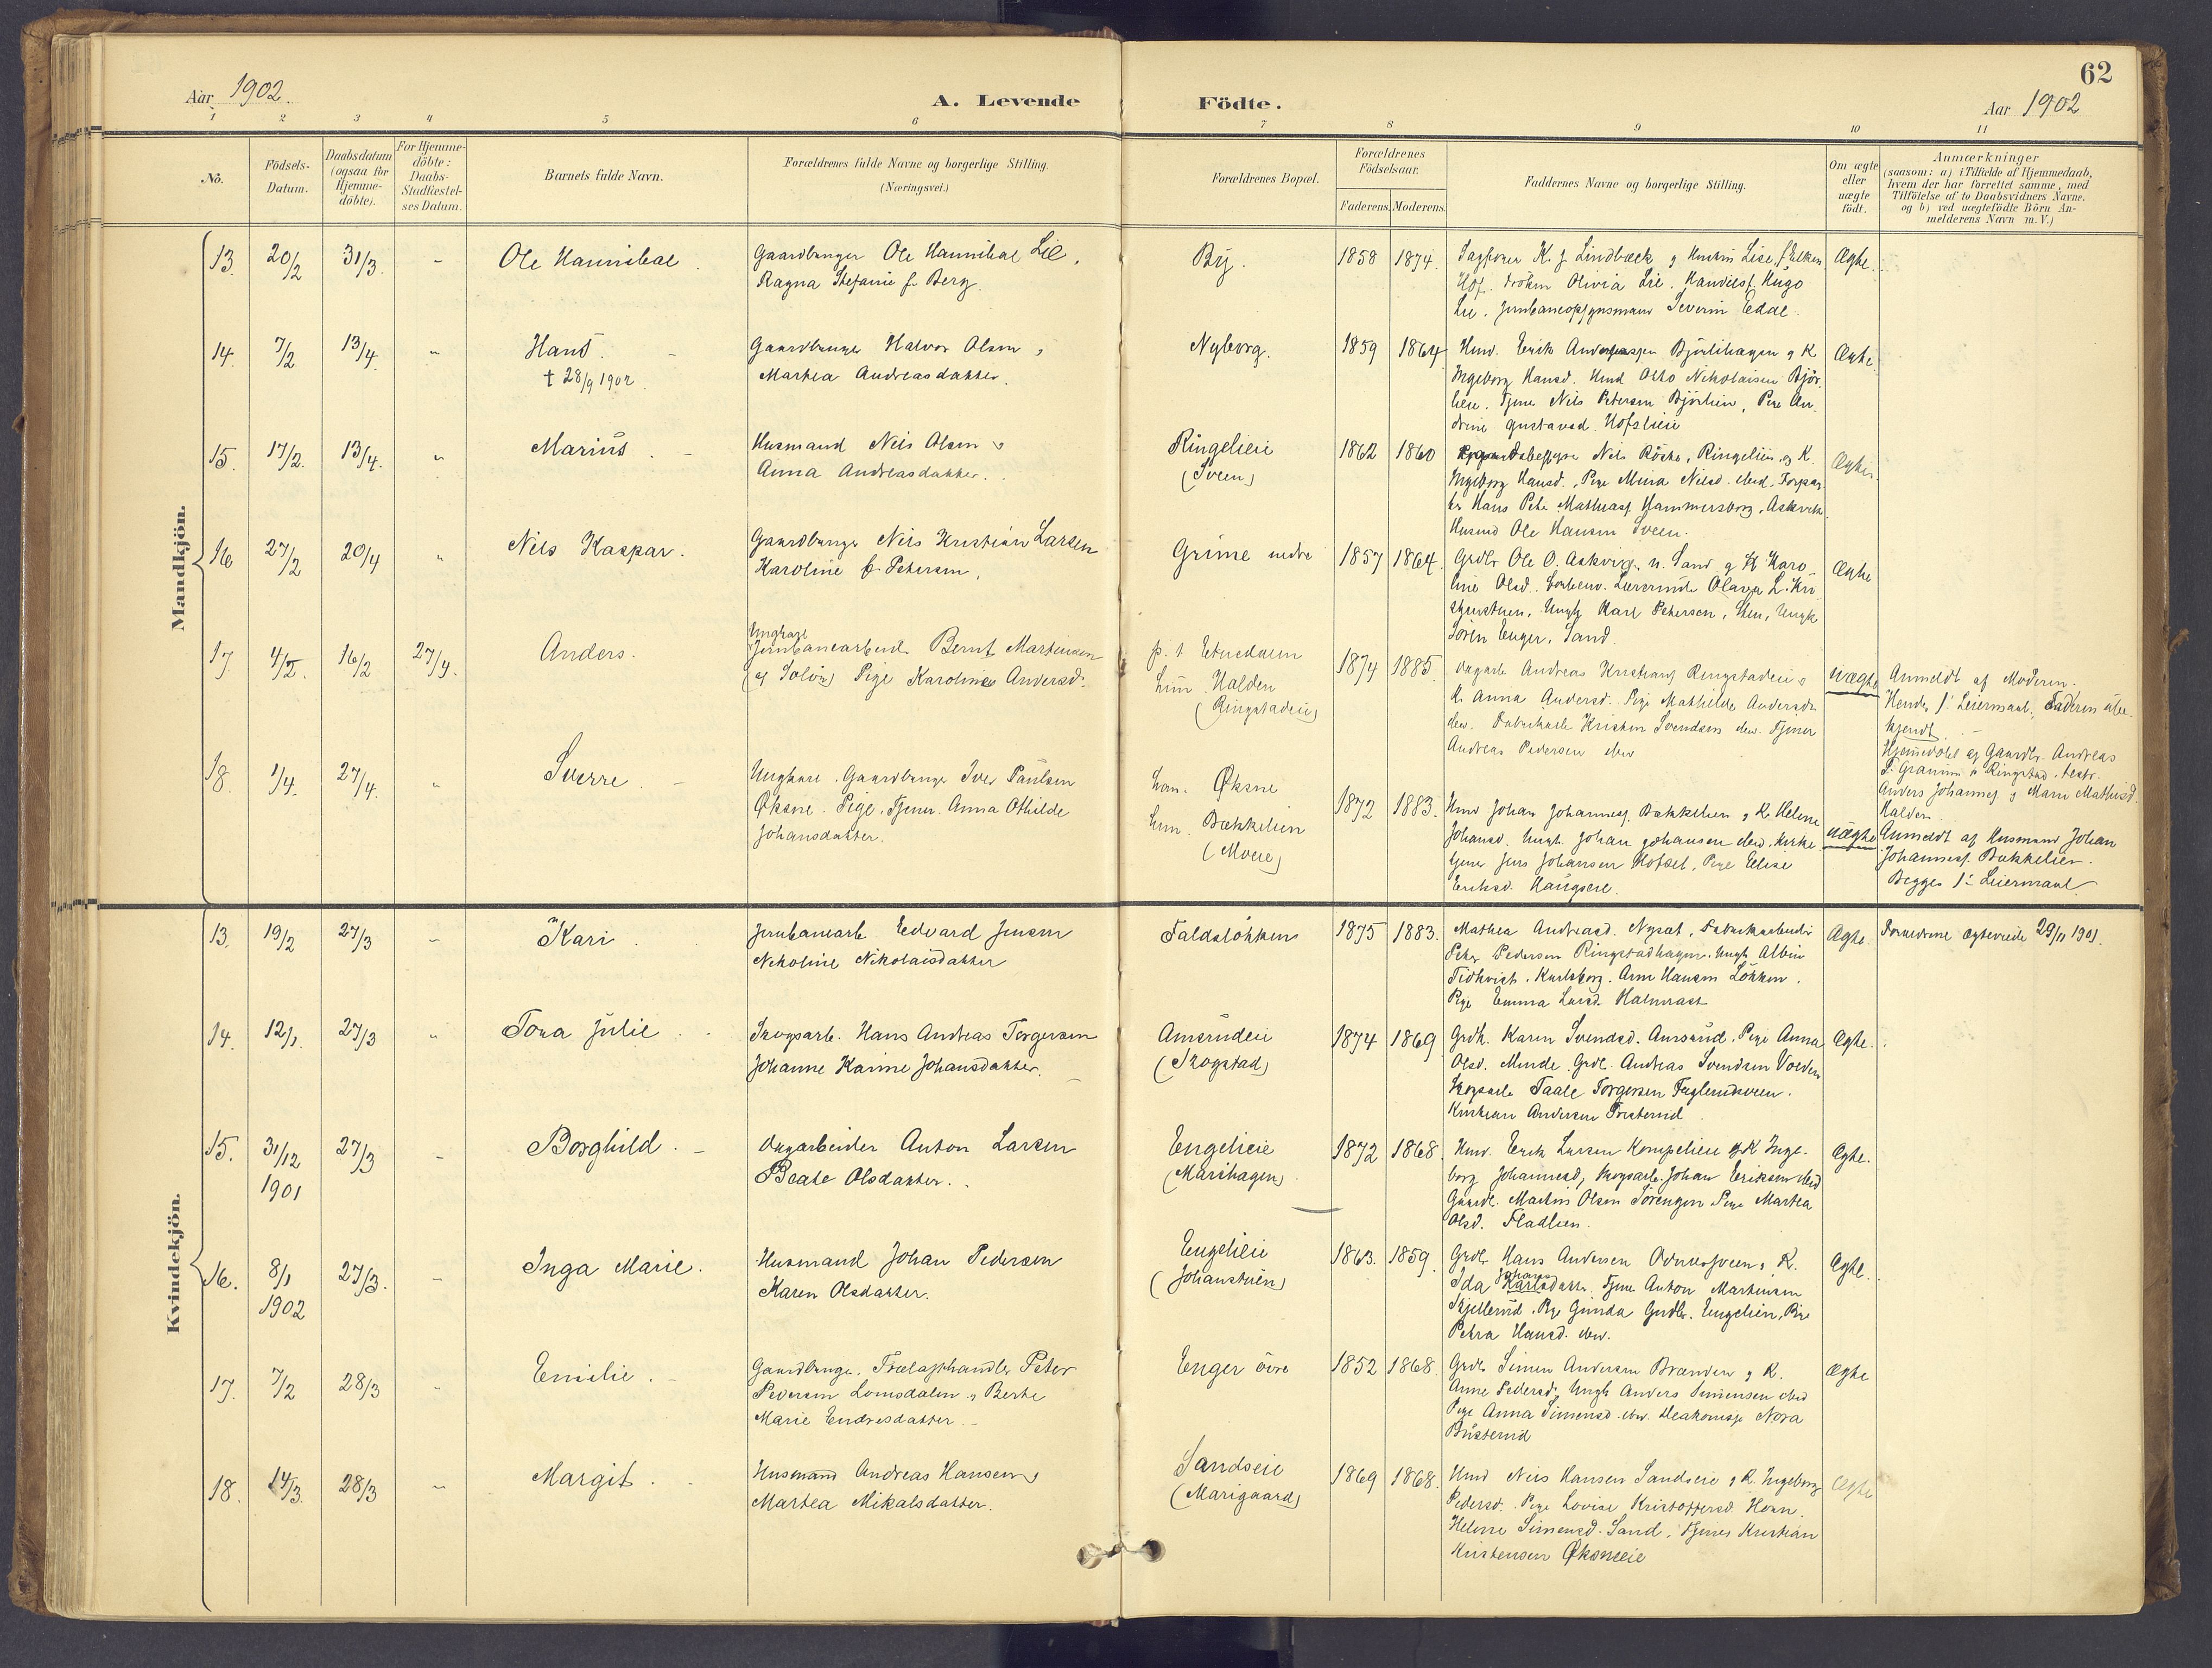 62
Aar 1902.
A. Levende
Födte.
Aar 1902
1 2 3 4 5 6 7 8 9 10 11
No.
Födsels-
Datum.
Daabsdatum
(ogsaa for
Hjemme-
döbte).
For Hjemme-
döbte:
Daabs-
Stadfæstel-
ses Datum.
Barnets fulde Navn.
Forældrenes fulde Navne og borgerlige Stilling.
(Næringsvei.)
Forældrenes Bopæl.
Forældrenes
Födselsaar.
Faderens.
Moderens.
Faddernes Navne og borgerlige Stilling.
Om ægte
eller
uægte
født.
Anmærkninger
(saasom: a) i Tilfælde af Hjemmedaab,
hvem der har forrettet samme, med
Tilföielse af to Daabsvidners Navne.
og b) ved uægtefödte Börn An-
melderens Navn m. V.)
Mandkjön.
13. 20/2 31/3. - Ole Hannibal.
Gaardbruger Ole Hannibal Lie,
Ragna Stefanie f. Berg.
By. 1858 1874.
Sagfører K. J. Lindbæck
Hof. Frøken Olivia Lie. Handelsf. Hugo
Lie. Severin Edal.
Ægte.
14. 7/2 13/4. - Hans.
† 28/9 1902.
Gaardbruger Halvor Olsen,
Martea Andreasdatter.
Nyborg. 1859 1864
Hmd. Erik Bjørlihagen g K
Ingeborg Hansd. Hmd Otto Nikolaisen Bjør-
Tjener Nils Petersen Bjørlien, Pige An-
drine Gustavsd. Hofslieie
Ægte.
15. 17/2. 13/4. " Marius.
Husmand Nils Olsen g
Anna Andreasdatter.
Ringelieie
(Sveen)
1862 1860
Nils Röste, Ringelien, og K.
Ingeborg Hansd., Pige Mina Nilsd.
Hans Peter Mathias. Hammersborg, Askvik.
Husmd Ole Hansen Sveen.
Ægte.
16 27/2 20/4 " Nils Kaspar.
Gaardbruger Nils Kristian Larsen
Karoline f. Petersen.
Grime nedre 1857 1864.
Grdbr Ole O. Askvig n. Sand g K Karo-
line Olsd. Lærerinde
Ungk Karl Petersen, Ungk
Sören Enger, Sand.
Ægte
17 4/2. 16/2 27/4. Anders.
Ungkarl
Jernbanearbeid. Bernt Martinsen
(af Solör) Pige Karoline Andersd.
p. t. Etnedalen
hun Halden
(Ringstadeie)
1874 1885.
Dagarb. Andreas Kristians. Ringstadeie g
K. Anna Andersd. Pige Mathilde Andersdr
Fabrikarb. Kristen Svendsen Tjener
Andreas Pedersen
uægte
Anmeldt af Moderen.
Hendes 1. Leiermaal. Faderen ube-
kjendt.
Hjemmedöbt af Gaardbr. Andreas
Anders Johannes. g Marn Mathisd.
Halden
18. 1/4. 27/4. " Sverre.
Ungkarl. Gaardbruger Iver Paulsen
Øksne. Pige, Tjener. Anna Othilde
Johansdatter.
han. Øksne
hun. Bækkelien
(Moeie)
1872 1883.
Hmd Johan Johannes. Bækkelien g K. Helene
Johansd. Ungk. Johan Johansen
Jens Johansen Hofset, Pige Elise
Eriksd. Haugseie.
uægte
Anmeldt af Husmand Johan
Johannes. Bækkelien.
Begges 1ste Leiermaal
Kvindekjön.
13. 19/2 27/3 - Kari.
Jernbanearb Edvard Jensen
Nikoline Nikolaisdatter
Faldsløkken 1875 1883.
Mathea Andreasd. Nysat, Fabrikarbeider
Peter Pedersen Ringstadhagen. Ungk Albin
Tidkvist. Karlsborg. Arne Hansen Lökken.
Pige Emma Larsd. Halmrast
Ægte
Forældrene ægteviede 29/11 1901.
14. 12/1. 27/3 " Tora Julie.
Skogsarb. Hans Andreas Torgersen
Johanne Karine Johansdatter.
Amsrudeie
(Skogstad)
1874 1869
Grdk. Karen Svendsd. Amsrud. Pige Anna
Olsd. Minde. Grdbr. Andreas Svendsen Volden
Skogsarb Taale Torgersen
Kristian Andersen
Ægte.
15. 31/12
1901
27/3 - Borghild.
Dagarbeider Anton Larsen
Beate Olsdatter.
Engelieie
(Marihagen)
1872 1868
Hmd. Erik Larsen g K Inge-
borg Johannesd, Skogsarb. Johan Eriksen
Gaardbr. Martin Olsen Sorengen Pige Martea
Olsd. Fladlien.
Ægte.
16. 8/1
1902
27/3. - Inga Marie.
Husmand Johan Pedersen
Karen Olsdatter.
Engelieie
(Johanstuen)
1863. 1859
Grdbr Hans Andersen g K.
Ida Johans
datter. Tjener Anton Martinsen
Skjellerud. Pige Gunda Gudbr. Engelien, Pige
Petra Hansd.
Ægte.
17. 7/2 28/3 - Emilie.
Gaardbruger. Trælasthandler Peter
Pedersen Lomsdalen g Berte
Marie Endresdatter.
Enger övre 1852 1868
Grdbr Simen Andersen Brænden g K.
Anne Pedersd, Ungk Anders Simensen
Pige Anna Simensd. Diakonisse Nora
Busterud
Ægte
18. 14/3. 28/3 - Margit.
Husmand Andreas Hansen g
Martea Mikalsdatter.
Sandseie
(Marigaard)
1869 1868.
Hmd Nils Hansen Sandseie g K. Ingeborg
Pedersd. Pige Lovise Kristoffersd. Hovn.
Helene Simensd. Sand, Tjener Kristian
Kristensen Øksneeie
Ægte